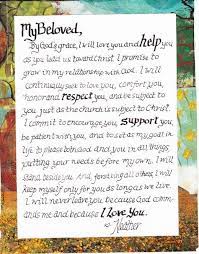 My Beloved,
By God's grace, I will love you and help you
as you lead us toward Christ. I promise to
grow in my relationship with God. I will
continually seek to love you, comfort you,
honor and respect you, and be subject to
you just as the church is subject to Christ.
I commit to encourage you, support you,
be patient with you, and to set as my goal in
life to please both God and you in all things,
putting your needs before my own. I will
stand beside you. And, forsaking all others, I will
keep myself only for you as long as we live.
I will never leave you because God comm-
ands me and because I love You.
Heather